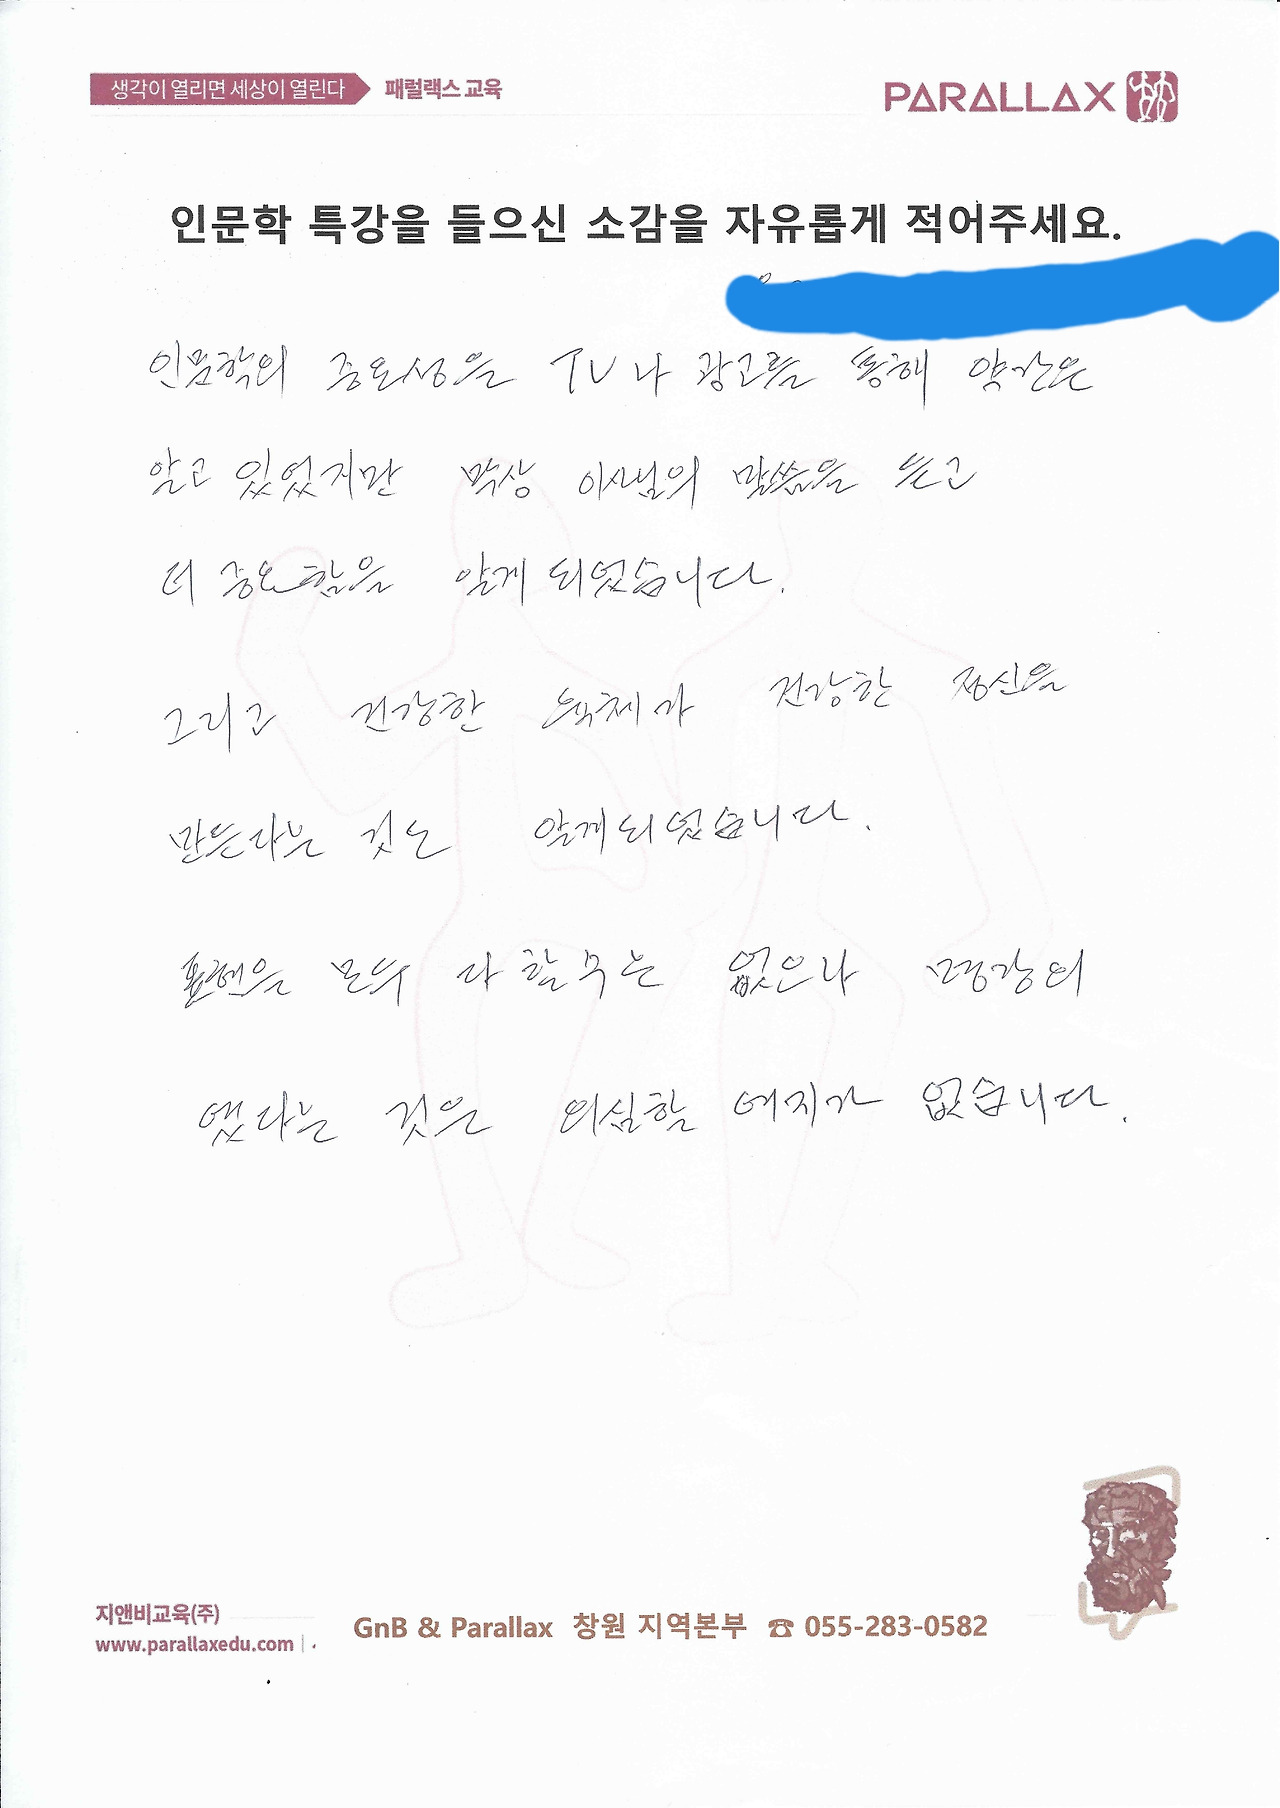 생각이 열리면 세상이 열린다 패럴랙스 교육
PARALLAX
인문학 특강을 들으신 소감을 자유롭게 적어주세요.
인문학의 중요성을 TV나 광고를 통해 약간은
알고 있었지만 막상 이사님의 말씀을 듣고
더 중요함을 알게 되었습니다.
그리고 건강한 육체가 건강한 정신을
만든다는 것도 알게 되었습니다.
표현은 모두 다 할 수는 없으나 명강의
였다는 것은 의심할 여지가 없습니다.
지앤비교육(주)
www.parallaxedu.com
GnB & Parallax 창원 지역본부 ☎ 055-283-0582